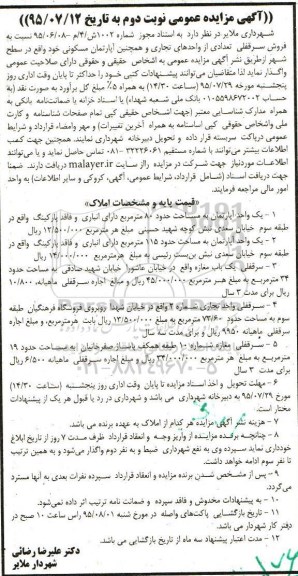 ((آگهی مزایده عمومی نوبت دوم به تاریخ ۹۵/۰۷/۱۲))
شهرداری ملایر در نظر دارد به استناد مجوز شماره ۱۰۰۲/ش/۴/م-۹۵/۰۶/۰۸ نسبت به
فروش سرقفلی تعدادی از واحدهای تجاری و همچنین آپارتمان مسکونی خود واقع در سطح
شهر ازطریق نشر آگهی مزایده عمومی به اشخاص حقیقی و حقوقی دارای صلاحیت عمومی
واگذار نماید لذا متقاضیان می‌توانند پیشنهادات کتبی خود را حداکثر تا پایان وقت اداری روز
پنجشنبه مورخه ۹۵/۰۷/۲۹ (ساعت ۱۴/۳۰) به همراه ۵٪ مبلغ کل برآورد به صورت نقد (به
حساب ۰۱۰۵۵۹۸۶۷۲۰۰۲ بانک ملی شعبه شهداء) یا اسناد خزانه یا ضمانتنامه بانکی به
همراه مدارک شناسایی معتبر (جهت اشخاص حقیقی کپی تمام صفحات شناسنامه و کارت
ملی واشخاص حقوقی کپی اساسنامه به همراه آخرین تغییرات) و مهر وامضاء قرارداد و شرایط
عمومی دریافت سربسته قرار داده و تحویل دبیرخانه شهرداری نمایند. همچنین جهت کسب
اطلاعات بیشتر می‌توانند با شماره مستقیم ۳۲۲۲۶۰۶۱-۰۸۱ تماس حاصل نماید و یا می‌توانند
اطلاعات موردنیاز جهت شرکت در مزایده رااز سایت malayer.ir دریافت دارند. ضمنا
جهت دریافت اسناد (شامل قرارداد، شرایط عمومی، آگهی، کروکی و سایر اطلاعات) به واحد
امور مالی مراجعه فرمایند.
«قیمت پایه و مشخصات املاک»
۱ - یک واحد آپارتمان به مساحت حدود ۸۰ مترمربع دارای انباری و فاقد پارکینگ واقع در
طبقه سوم خیابان سعدی نبش کوچه شهید حسینی مبلغ هر متر مربع ۱۲/۵۰۰/۰۰۰ ریال
۲ - یک واحد آپارتمان به مساحت حدود ۱۱۵ مترمربع دارای انباری و فاقد پارکینگ واقع در
طبقه سوم خیابان سعدی نبش بن‌بست رئیسی به مبلغ هرمترمربع ۱۴/۰۰۰/۰۰۰ ریال
۳ - سرقفلی یک باب مغازه واقع در خیابان عاشورا خیابان شهید صادقی به مساحت حدود
۳۴ مترمربع به مبلغ هر متر مربع ۴۵/۰۰۰/۰۰۰ ریال و مبلغ اجاره سرقفلی ماهیانه ۱۰/۸۰۰
ریال برای مدت ۳ سال
۴ - سرقفلی واحد تجاری شماره ۲ واقع در خیابان شهدا روبروی فروشگاه فرهنگیان طبقه
سوم به مساحت حدود ۷۳/۶۰ مترمربع به مبلغ ۱۳/۵۰۰/۰۰۰ ریال بابت هرمترمربع، و مبلغ اجاره
سرقفلی ماهیانه ۹۹۵۰ ریال و برای مدت ۳ سال
۵ - سرقفلی مغازه شماره ۱۰ طبقه همکف پاساژ صفرخانیان به مساحت حدود ۱۹
مترمربع به مبلغ هر متر مربع ۳۴/۰۰۰/۰۰۰ ریال و مبلغ اجاره سرقفلی ماهیانه ۶/۵۰۰ ریال
برای مدت ۳ سال
۶ - مهلت تحویل و اخذ اسناد مزایده تا پایان وقت اداری روز پنجشنبه (ساعت ۱۴/۳۰)
مورخ ۹۵/۰۷/۲۹ به دبیرخانه شهرداری می باشد و شهرداری در رد یا قبول هر یک از پیشنهادات
مختار است.
۷ - هزینه نشر آگهی مزایده هر کدام از املاک به عهده برنده می باشد.
۸ - چنانچه برنده مزایده از واریز وجه و انعقاد قرارداد ظرف مدت ۷ روز از تاریخ ابلاغ
خودداری نماید سپرده وی به نفع شهرداری ضبط و به نفر دوم واگذار می‌شود و به همین ترتیب
تا نفر سوم ادامه خواهد داشت.
۹ - پس از مشخص شدن برنده مزایده و انعقاد قرارداد سپرده نفرات بعدی به آنها مسترد
می‌گردد.
۱۰ - به پیشنهادات مخدوش و فاقد سپرده و ضمانت نامه ترتیب اثر داده نمی‌شود.
۱۱ - تاریخ بازگشایی پاکت‌های واصله در مورخ شنبه ۹۵/۰۸/۰۱ راس ساعت ۱۰ صبح در
دفتر کار شهردار می باشد.
۱۲ - مدت اعتبار پیشنهاد سه ماه از تاریخ بازگشایی می باشد.
دکتر علیرضا رضائی
شهردار ملایر